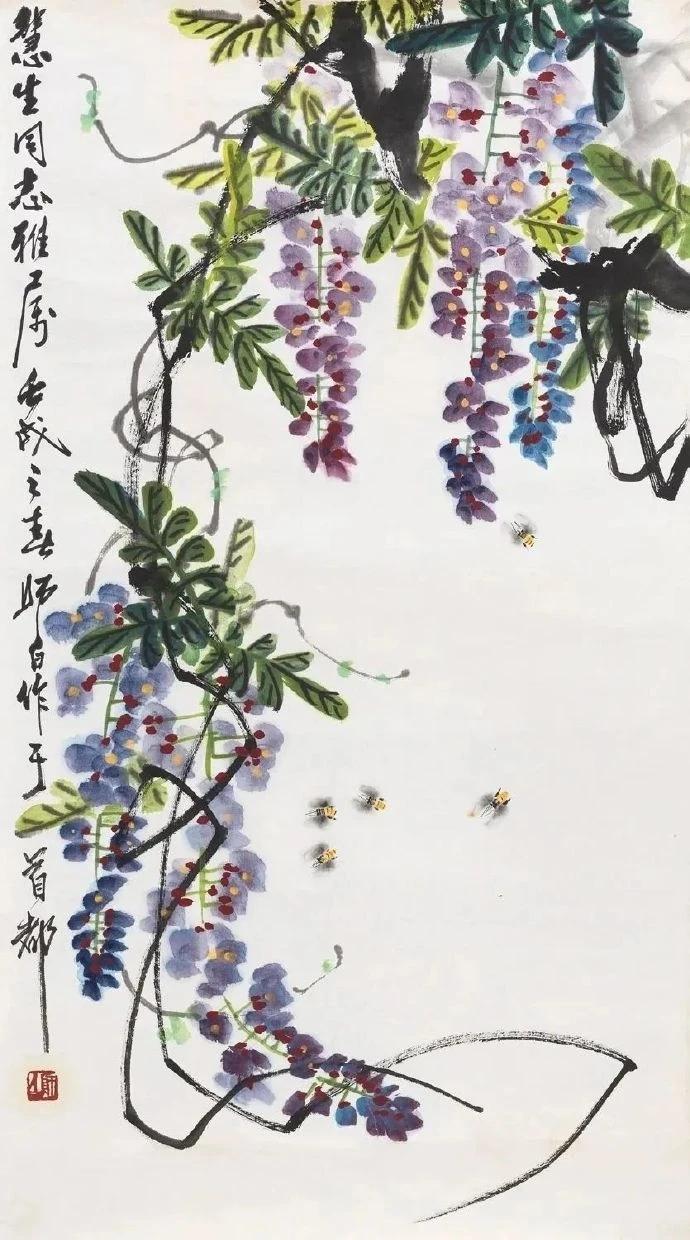 慧生同志雅属壬戌之春师白作于首都